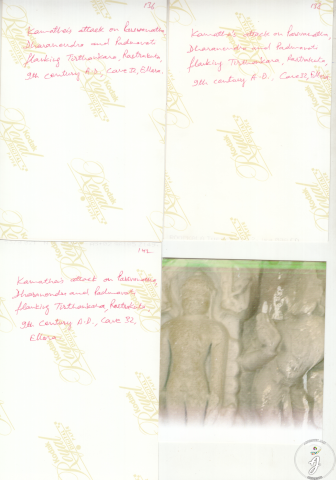 136
Kamatha's attack on Parsvanatha,
Dharanendra and Padmavati
flanking Tirthankara, Rastrakuta,
9th century A.D., Cave 32, Ellora.
138
Kamatha's attack on Parsvanatha,
Dharanendra and Padmavati
flanking Tirthankara, Rastrakuta,
9th century A.D., Cave 32, Ellora
142
Kamatha's attack on Parsvanatha,
Dharanendra and Padmavati
flanking Tirthankara, Rastrakuta,
9th Century A.D., Cave 32,
Ellora